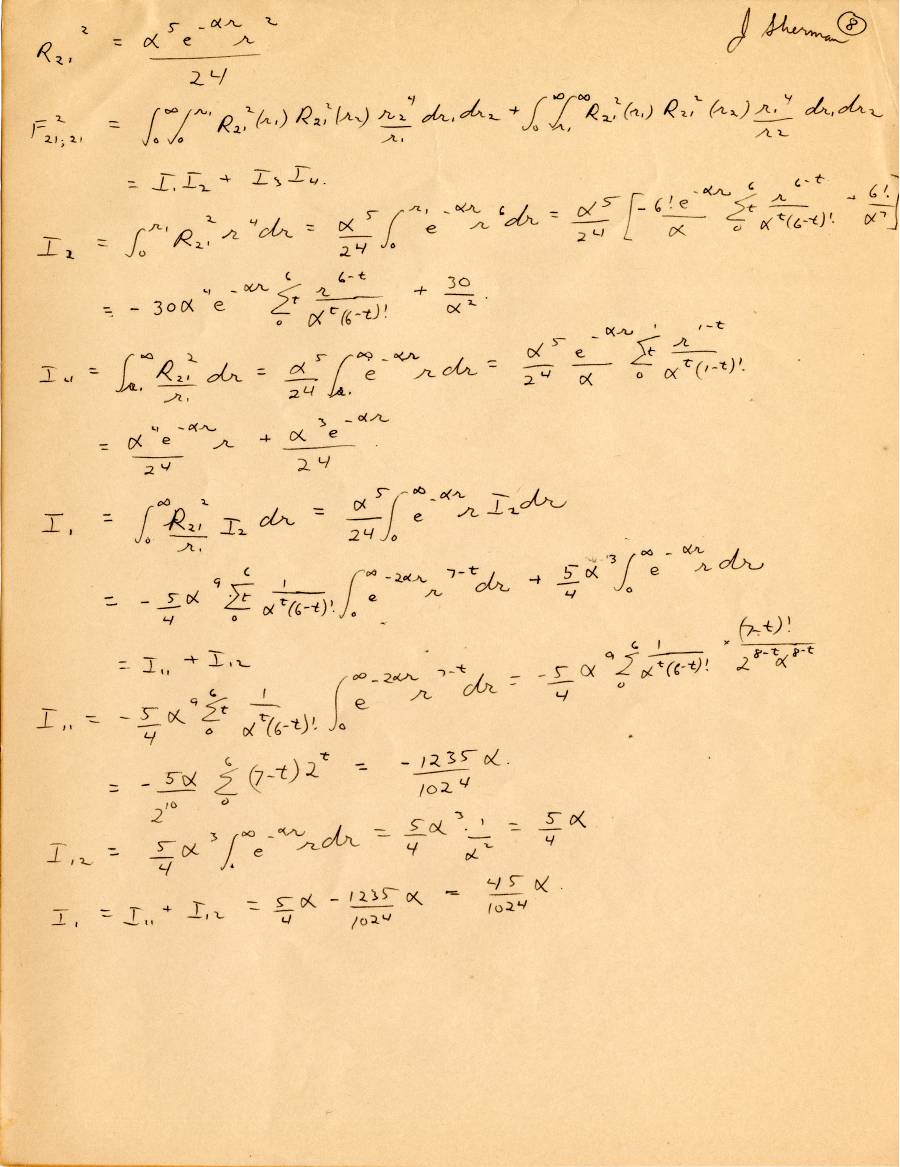 J Sherman (8)
R₂₁² = α⁵e^{-αr} r² / 24
F²₂₁;₂₁ = ∫₀^∞ ∫₀^{r₁} R₂₁²(r₁) R₂₁²(r₂) r₂⁴/r₁ dr₁dr₂ + ∫₀^∞ ∫_{r₁}^∞ R₂₁²(r₁) R₂₁²(r₂) r₁⁴/r₂ dr₁dr₂
= I₁I₂ + I₃I₄.
I₂ = ∫₀^{r₁} R₂₁² r⁴dr = α⁵/24 ∫₀^{r₁} e^{-αr} r⁶dr = α⁵/24 [ -6!e^{-αr}/α Σₜ₀⁶ r^{6-t}/αᵗ(6-t)! + 6!/α⁷ ]
= - 30α⁴e^{-αr} Σₜ₀⁶ r^{6-t}/αᵗ(6-t)! + 30/α².
I₄ = ∫_{r₁}^∞ R₂₁²/r₁ dr = α⁵/24 ∫_{r₁}^∞ e^{-αr} r dr = α⁵/24 e^{-αr}/α Σₜ₀¹ r^{1-t}/αᵗ(1-t)!.
= α⁴e^{-αr}/24 r + α³e^{-αr}/24.
I₁ = ∫₀^∞ R₂₁²/r₁ I₂ dr = α⁵/24 ∫₀^∞ e^{-αr} r I₂dr
= - 5/4 α⁹ Σₜ₀⁶ 1/αᵗ(6-t)! ∫₀^∞ e^{-2αr} r^{7-t} dr + 5/4 α³ ∫₀^∞ e^{-αr} r dr
= I₁₁ + I₁₂
I₁₁ = - 5/4 α⁹ Σₜ₀⁶ 1/αᵗ(6-t)! ∫₀^∞ e^{-2αr} r^{7-t} dr = - 5/4 α⁹ Σ₀⁶ 1/αᵗ(6-t)! × (7-t)!/2^{8-t}α^{8-t}
= - 5α/2¹⁰ Σ₀⁶ (7-t)2ᵗ = -1235/1024 α.
I₁₂ = 5/4 α³ ∫₀^∞ e^{-αr} r dr = 5/4 α³ · 1/α² = 5/4 α
I₁ = I₁₁ + I₁₂ = 5/4 α - 1235/1024 α = 45/1024 α.